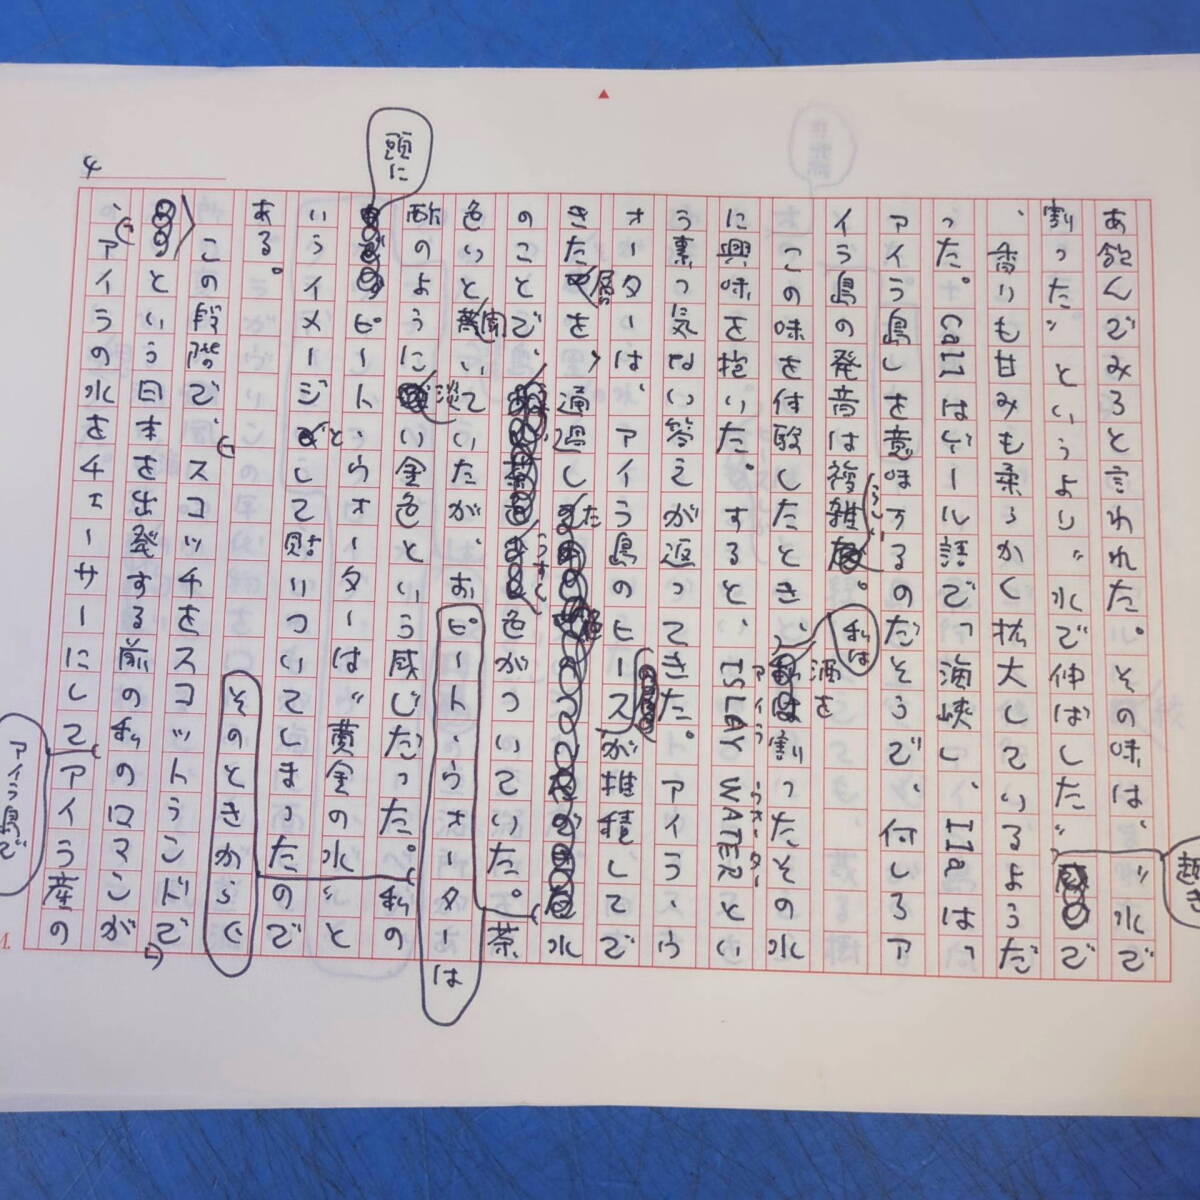 4
あ飲んでみろと言われた。その味は、〝水で
割った〟というより〝水で伸ばした〟で
超き
、香りも甘みも柔らかく拡大しているようだ
った。Callはゲール語で「海峡」、Ilaは「
アイラ島」を意味するのだそうで、何しろア
イラ島の発音は複雑
らしい。
私は
この味を付酸したとき、酒を割ったその水
に興味を抱いた。すると、ISLAY WATERとい
アイラ ウォーター
う素っ気ない答えが返ってきた。アイラ・ウ
ォーターは、アイラ島のピースが堆積してで
きた層を、通過した水
のことで、うすく色がついていた。茶
色いと聞いていたが、ピート・ウォーターは
酢のように淡い金色という感じだった。私の
頭に
ピート・ウォーターは〝黄金の水〟と
いうイメージとして貼りついてしまったので
ある。
そのときからぐ
この段階で、スコッチをスコットランドで
という日本を出発する前の私のロマンが
、アイラの水をチェーサーにしてアイラ産の
アイラ島で